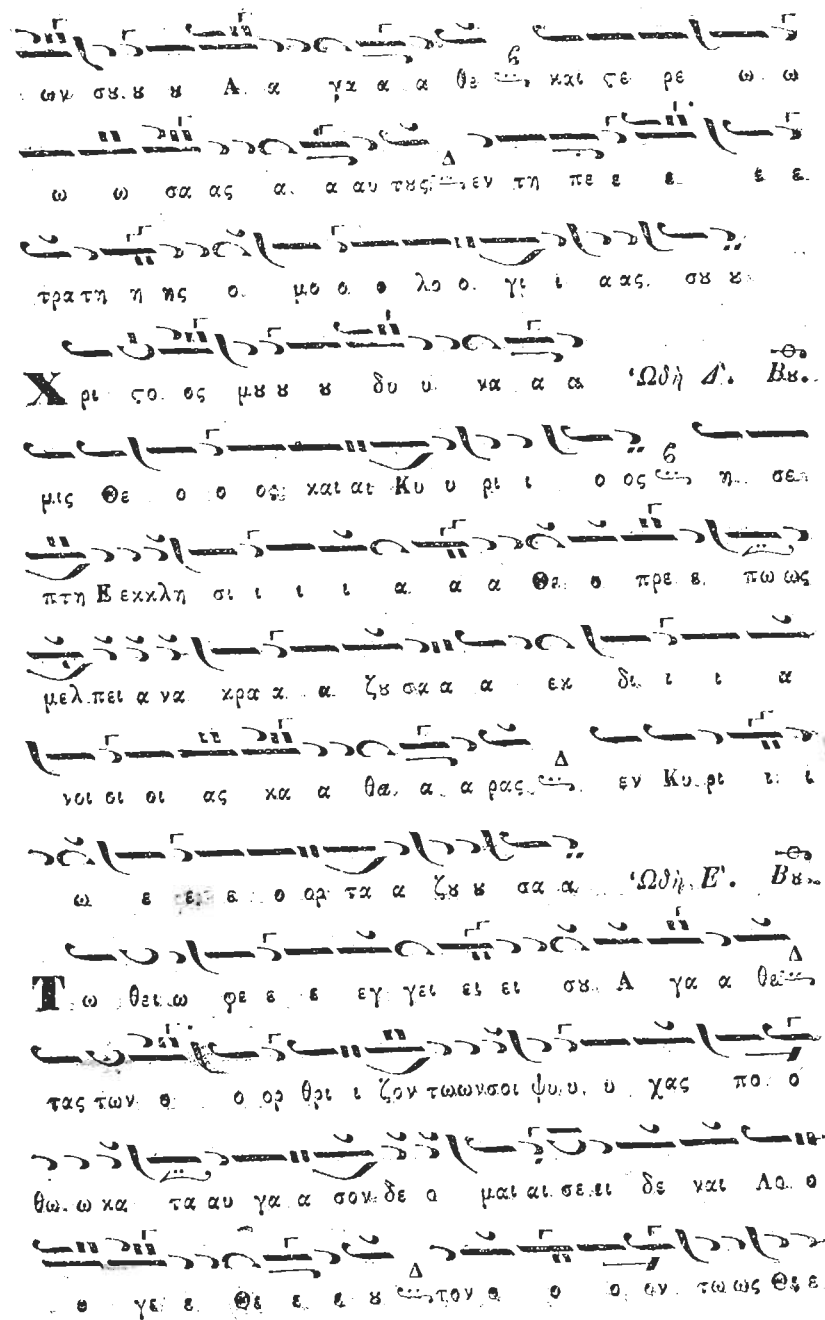 ων σȣ ȣ ȣ Α α γα α α θε και ϛε ρε ω ω
ω ω σα ας α α αυ τȣς Δ εν τη πε ε ε ε ε
τρα τη η ης ο μο ο ο λο ο γι ι α ας σȣ ȣ
Χ ρι ϛο ος μȣ ȣ ȣ δυ υ να α α Ὠδὴ Δ΄. Βȣ.
μις Θε ο ο ος και αι Κυ υ ρι ι ο ος η σε
πτη Ε εκκλη σι ι ι ι α α α Θε ο πρε ε πω ως
μελ πει α να κρα α α ζȣ σα α α εκ δι ι ι α
νοι οι οι ας κα α θα α α ρας Δ εν Κυ ρι ι ι
ω ε ε ε ο ορ τα α ζȣ ȣ σα α Ὠδὴ Ε΄. Βȣ.
Τ ω θει ω φε ε ε εγ γει ει ει σȣ Α γα α θε Δ
τας των ο ο ορ θρι ι ζον τω ων σοι ψυ υ υ χας πο ο
θω ω κα τα αυ γα α σον δε ο μαι αι σε ει δε ναι Λο ο
ο γε ε Θε ε ε ȣ Δ τον ο ο ο ον τω ως Θε ε